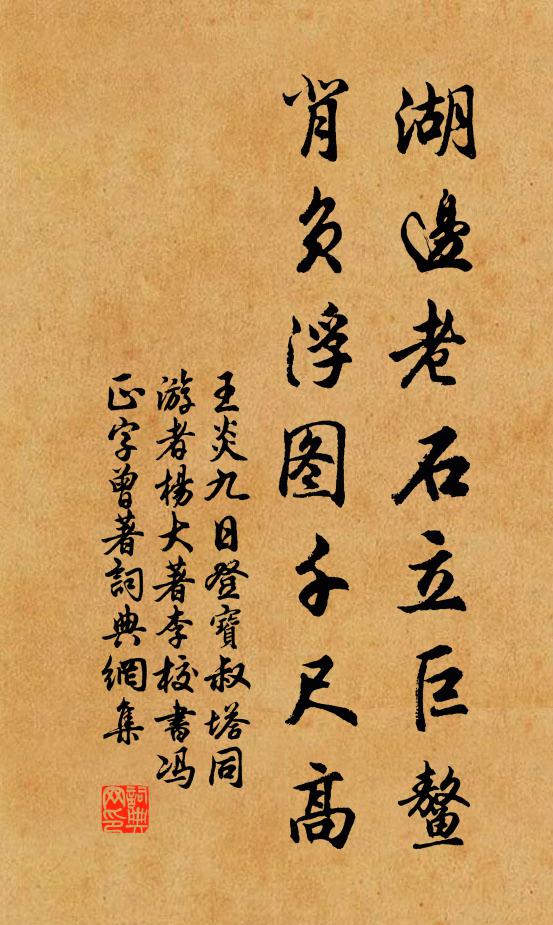 湖邊老石立巨鳌
背负浮图千尺高
王炎九日登寶叔塔同
游者楊大著李校書冯
正字曾著詞典網集
詞典网印